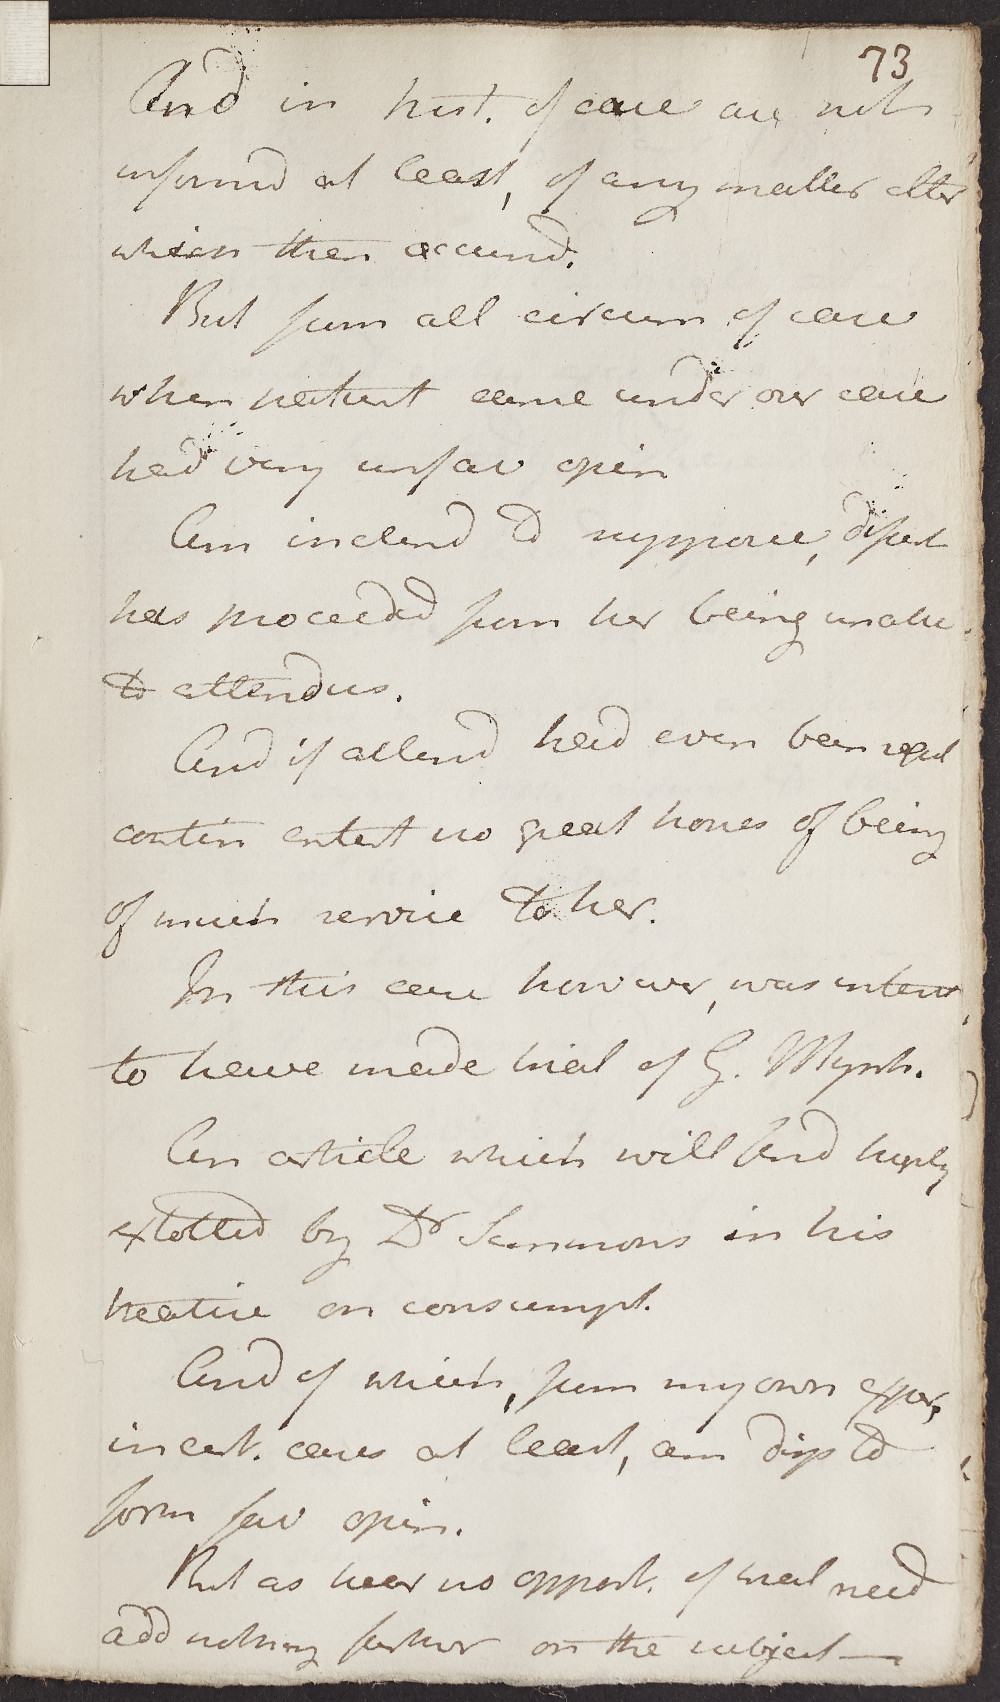 73
And in hist. of case are not
informd at least, of any matter alter
which then occurrd.
But from all circum of case
when patient came under our care
had very unfav opin
Am inclend to suppose, disput
has proceeded from her being unable
to attend us.
And if attend had even been regul
contin entert no great hopes of being
of much service to her.
In this case however, was intent
to have made trial of G. Myrrh.
An article which will find highly
extolled by Dr Simmons in his
treatise on consumpt.
And of which, from my own exper,
in cert. cases at least, am disp to
form fav opin.
But as have no opport. of trial need
add nothing further on the subject —